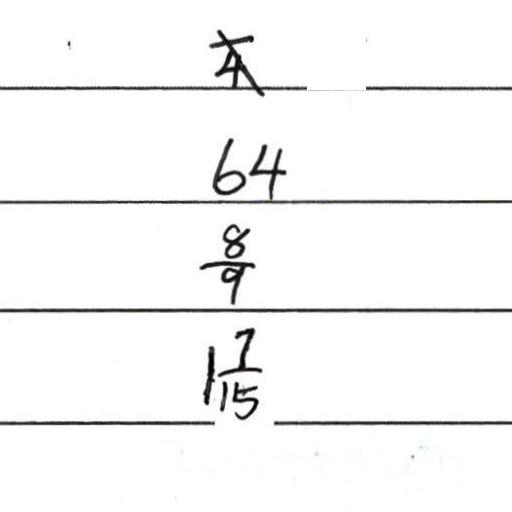 64
8/9
1 7/15